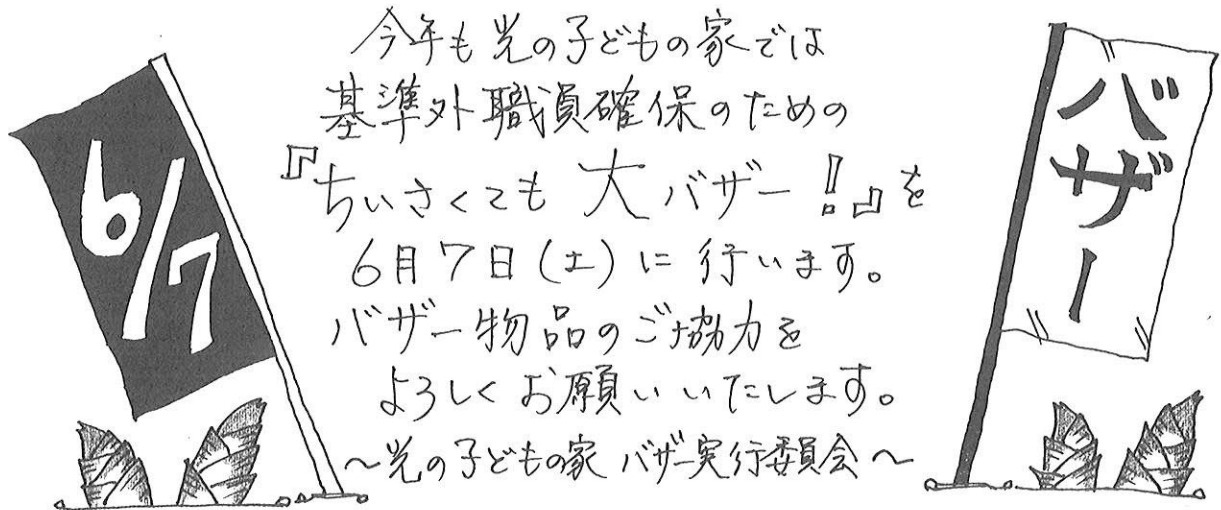 6/7
今年も光の子どもの家では
基準外職員確保のための
『ちいさくても 大バザー!』を
6月7日(土)に行います。
バザー物品のご協力を
よろしくお願いいたします。
〜光の子どもの家 バザー実行委員会〜
バザー